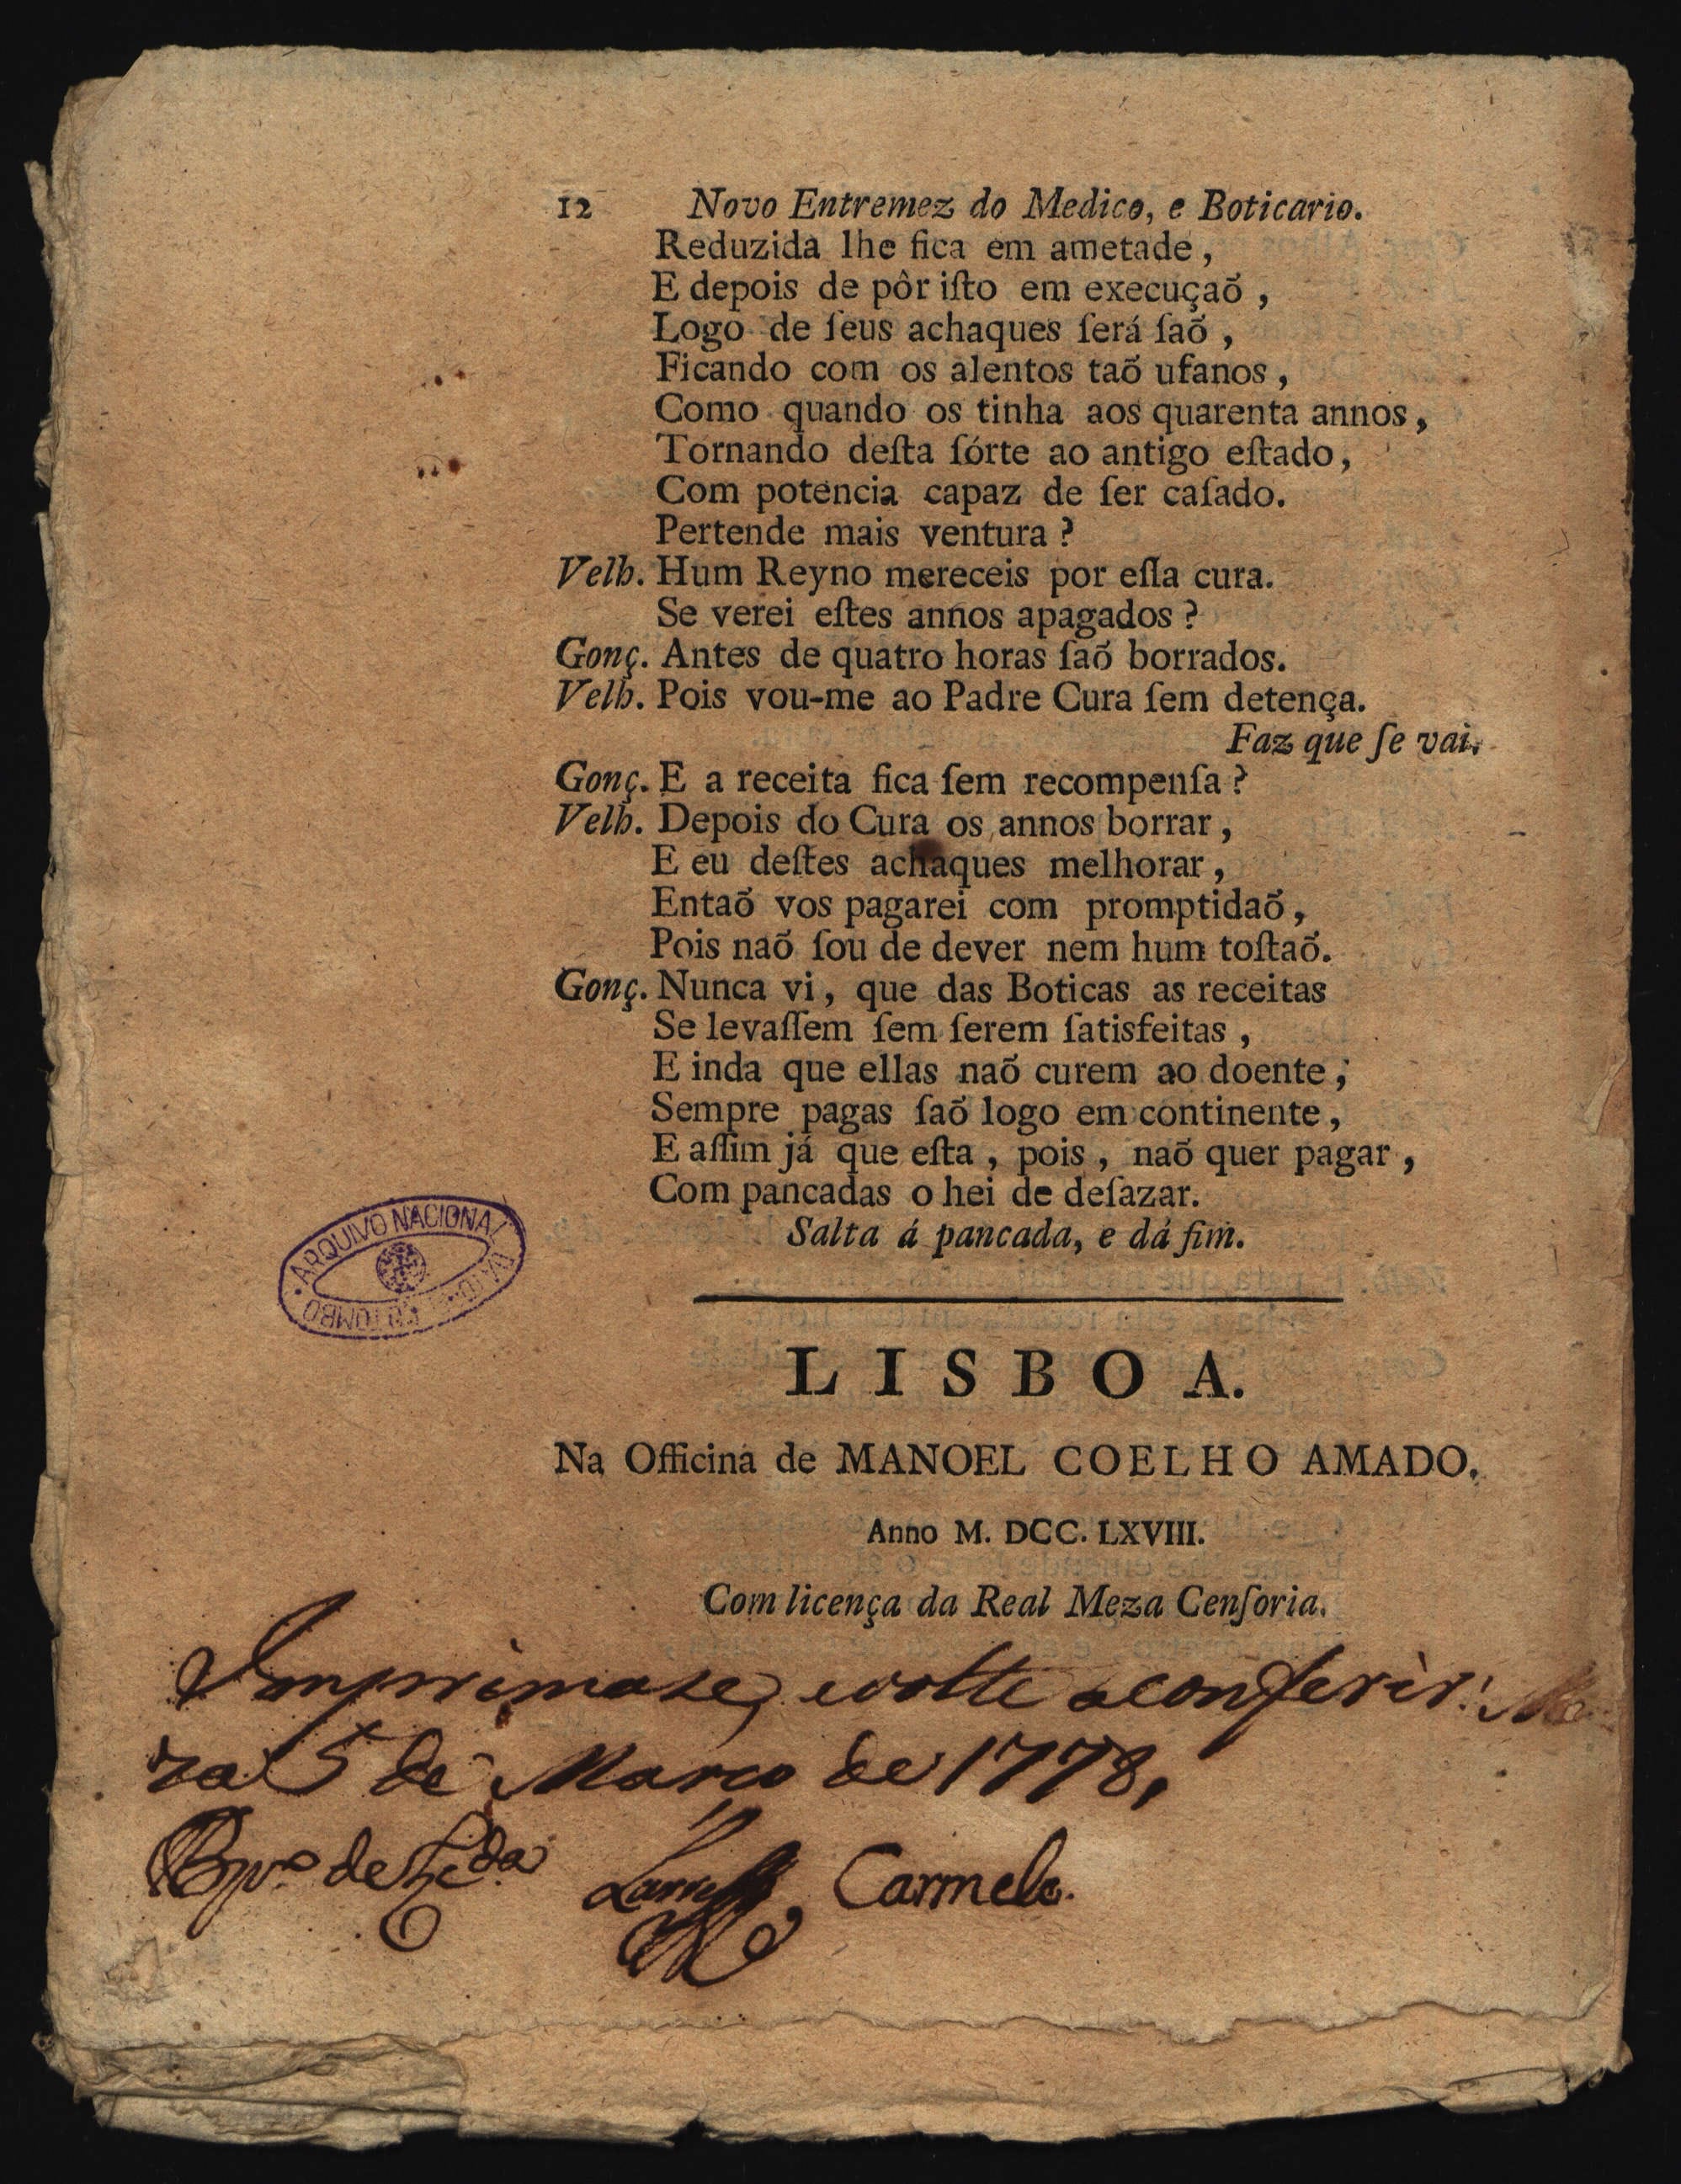 12 Novo Entremez do Medico, e Boticario.
Reduzida lhe fica em ametade,
E depois de pôr iſto em execuçaõ,
Logo de ſeus achaques ſerá ſaõ,
Ficando com os alentos taõ ufanos,
Como quando os tinha aos quarenta annos,
Tornando deſta ſórte ao antigo eſtado,
Com potencia capaz de ſer caſado.
Pertende mais ventura?
Velh. Hum Reyno mereceis por eſſa cura.
Se verei eſtes annos apagados?
Gonç. Antes de quatro horas ſaõ borrados.
Velh. Pois vou-me ao Padre Cura ſem detença.
Faz que ſe vai.
Gonç. E a receita fica ſem recompenſa?
Velh. Depois do Cura os annos borrar,
E eu deſtes achaques melhorar,
Entaõ vos pagarei com promptidaõ,
Pois naõ ſou de dever nem hum toſtaõ.
Gonç. Nunca vi, que das Boticas as receitas
Se levaſſem ſem ſerem ſatisfeitas,
E inda que ellas naõ curem ao doente;
Sempre pagas ſaõ logo em continente,
E aſſim já que eſta, pois, naõ quer pagar,
Com pancadas o hei de deſazar.
Salta á pancada, e dá fim.
ARQUIVO NACIONAL DA TORRE DO TOMBO
LISBOA.
Na Officina de MANOEL COELHO AMADO.
Anno M. DCC. LXVIII.
Com licença da Real Meza Cenſoria.
Imprimase, e volte a conferir. Me
za 5 de Março de 1778,
Bpo. de
Carmelo.